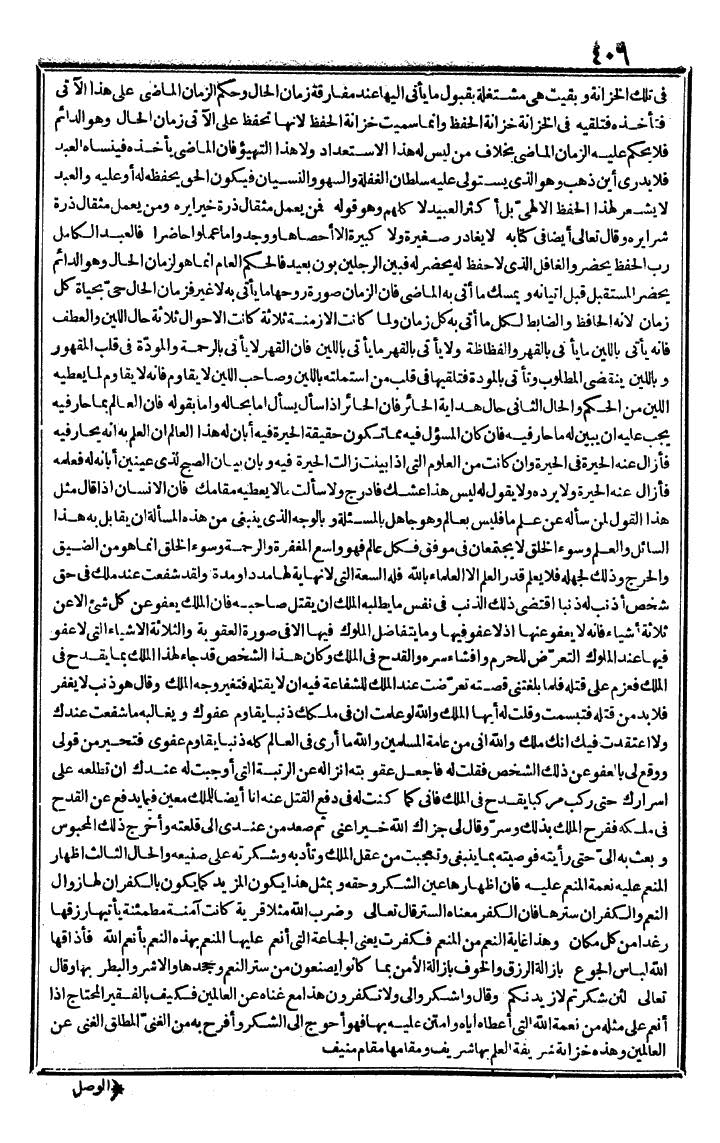 ٤٠٩
فى تلك الخزانة وبقيت هى مشتغلة بقبول ما يأتى اليها عند مفارقة زمان الحال وحكم الزمان الماضى على هذا الآتى
فتأخذه فتلقيه فى الخزانة خزانة الحفظ وانما سميت خزانة الحفظ لانها تحفظ على الآتى زمان الحال وهو الدائم
فلا يحكم عليه الزمان الماضى بخلاف من ليس له هذا الاستعداد ولا هذا التهيؤ فان الماضى يأخذه فينساه العبد
فلا يدرى أين ذهب وهو الذى يستولى عليه سلطان الغفلة والسهو والنسيان فيكون الحق يحفظه له أو عليه والعبد
لا يشعر لهذا الحفظ الالهىّ بل أكثر العبيد لا كلهم وهو قوله فمن يعمل مثقال ذرة خيرا يره ومن يعمل مثقال ذرة
شرا يره وقال تعالى أيضا فى كتابه لا يغادر صغيرة ولا كبيرة الا أحصاها ووجدوا ما عملوا حاضرا فالعبد الكامل
رب الحفظ يحضر والغافل الذى لا حفظ له يحضر له فبين الرجلين بون بعيد فالحكم العام انما هو لزمان الحال وهو الدائم
يحضر المستقبل قبل اتيانه ويمسك ما أتى به الماضى فان الزمان صورة روحها ما يأتى به لا غير فزمان الحال حىّ بحياة كل
زمان لانه الحافظ والضابط لكل ما أتى به كل زمان ولما كانت الازمنة ثلاثة كانت الاحوال ثلاثة حال اللين والعطف
فانه يأتى باللين ما يأتى بالقهر والفظاظة ولا يأتى بالقهر ما يأتى باللين فان القهر لا يأتى بالرحمة والمودّة فى قلب المقهور
وباللين ينقضى المطلوب وتأتى بالمودة فتلقيها فى قلب من استملته باللين وصاحب اللين لا يقاوم فانه لا يقاوم لما يعطيه
اللين من الحكم والحال الثانى حال هداية الحائر فان الحائر اذا سأل يسأل اما بحاله واما بقوله فان العالم بما حار فيه
يجب عليه ان يبين له ما حار فيه فان كان المسؤل فيه مما تكون حقيقة الحيرة فيه أبان له هذا العالم ان العلم به انه يحار فيه
فأزال عنه الحيرة فى الحيرة وان كانت من العلوم التى اذا بينت زالت الحيرة فيه وبان بيان الصبح لذى عينين أبانه له فعلمه
فأزال عنه الحيرة ولا يرده ولا يقول له ليس هذا عشك فادرج ولا سألت ما لا يعطيه مقامك فان الانسان اذا قال مثل
هذا القول لمن سأله عن علم ما فليس بعالم وهو جاهل بالمسئلة وبالوجه الذى ينبغى من هذه المسألة ان يقابل به هذا
السائل والعلم وسوء الخلق لا يجتمعان فى موفق فكل عالم فهو واسع المغفرة والرحمة وسوء الخلق انما هو من الضيق
والحرج وذلك لجهله فلا يعلم قدر العلم الا العلماء بالله فله السعة التى لا نهاية لها مددا ومدة ولقد شفعت عند ملك فى حق
شخص أذنب له ذنبا اقتضى ذلك الذنب فى نفس ما يطلبه الملك ان يقتل صاحبه فان الملك يعفو عن كل شئ الا عن
ثلاثة أشياء فانه لا يعفو عنها اذ لا عفو فيها وما يتفاضل الملوك فيها الا فى صورة العقوبة والثلاثة الاشياء التى لا عفو
فيها عند الملوك التعرّض للحرم وافشاء سره والقدح فى الملك وكان هذا الشخص قد جاء لهذا الملك بما يقدح فى
الملك فعزم على قتله فلما بلغتنى قصته تعرّضت عند الملك للشفاعة فيه ان لا يقتله فتغير وجه الملك وقال هو ذنب لا يغفر
فلا بد من قتله فتبسمت وقلت له أيها الملك والله لو علمت ان فى ملكك ذنبا يقاوم عفوك ويغالبه ما شفعت عندك
ولا اعتقدت فيك انك ملك والله انى من عامة المسلمين والله ما أرى فى العالم كله ذنبا يقاوم عفوى فتحير من قولى
ووقع لى بالعفو عن ذلك الشخص فقلت له فاجعل عقوبته انزاله عن الرتبة التى أوجبت له عندك ان تطلعه على
اسرارك حتى ركب مركبا يقدح فى الملك فانى كما كنت له فى دفع القتل عنه انا أيضا للملك معين فيما يدفع عن القدح
فى ملكه ففرح الملك بذلك وسرّ وقال لى جزاك الله خيرا عنى ثم صعد من عندى الى قلعته وأخرج ذلك المحبوس
وبعث به الىّ حتى رأيته فوصيته بما ينبغى وتعجبت من عقل الملك وتأدبه وشكرته على صنيعه والحال الثالث اظهار
المنعم عليه نعمة المنعم عليه فان اظهارها عين الشكر وحقه وبمثل هذا يكون المزيد كما يكون بالكفران لها زوال
النعم والكفران سترها فان الكفر معناه الستر قال تعالى وضرب الله مثلا قرية كانت آمنة مطمئنة يأتيها رزقها
رغدا من كل مكان وهذا غاية النعم من المنعم فكفرت يعنى الجماعة التى أنعم عليها المنعم بهذه النعم بأنعم الله فأذاقها
الله لباس الجوع بازالة الرزق والخوف بازالة الأمن بما كانوا يصنعون من ستر النعم وجحدها والاشر والبطر بها وقال
تعالى لئن شكرتم لازيدنكم وقال واشكروا لى ولا تكفرون هذا مع غناه عن العالمين فكيف بالفقير المحتاج اذا
أنعم على مثله من نعمة الله التى أعطاه اياه وامتن عليه بها فهو أحوج الى الشكر وأفرح به من الغنىّ المطلق الغنى عن
العالمين وهذه خزانة شريفة العلم بها شريف ومقامها مقام منيف
* الوصل